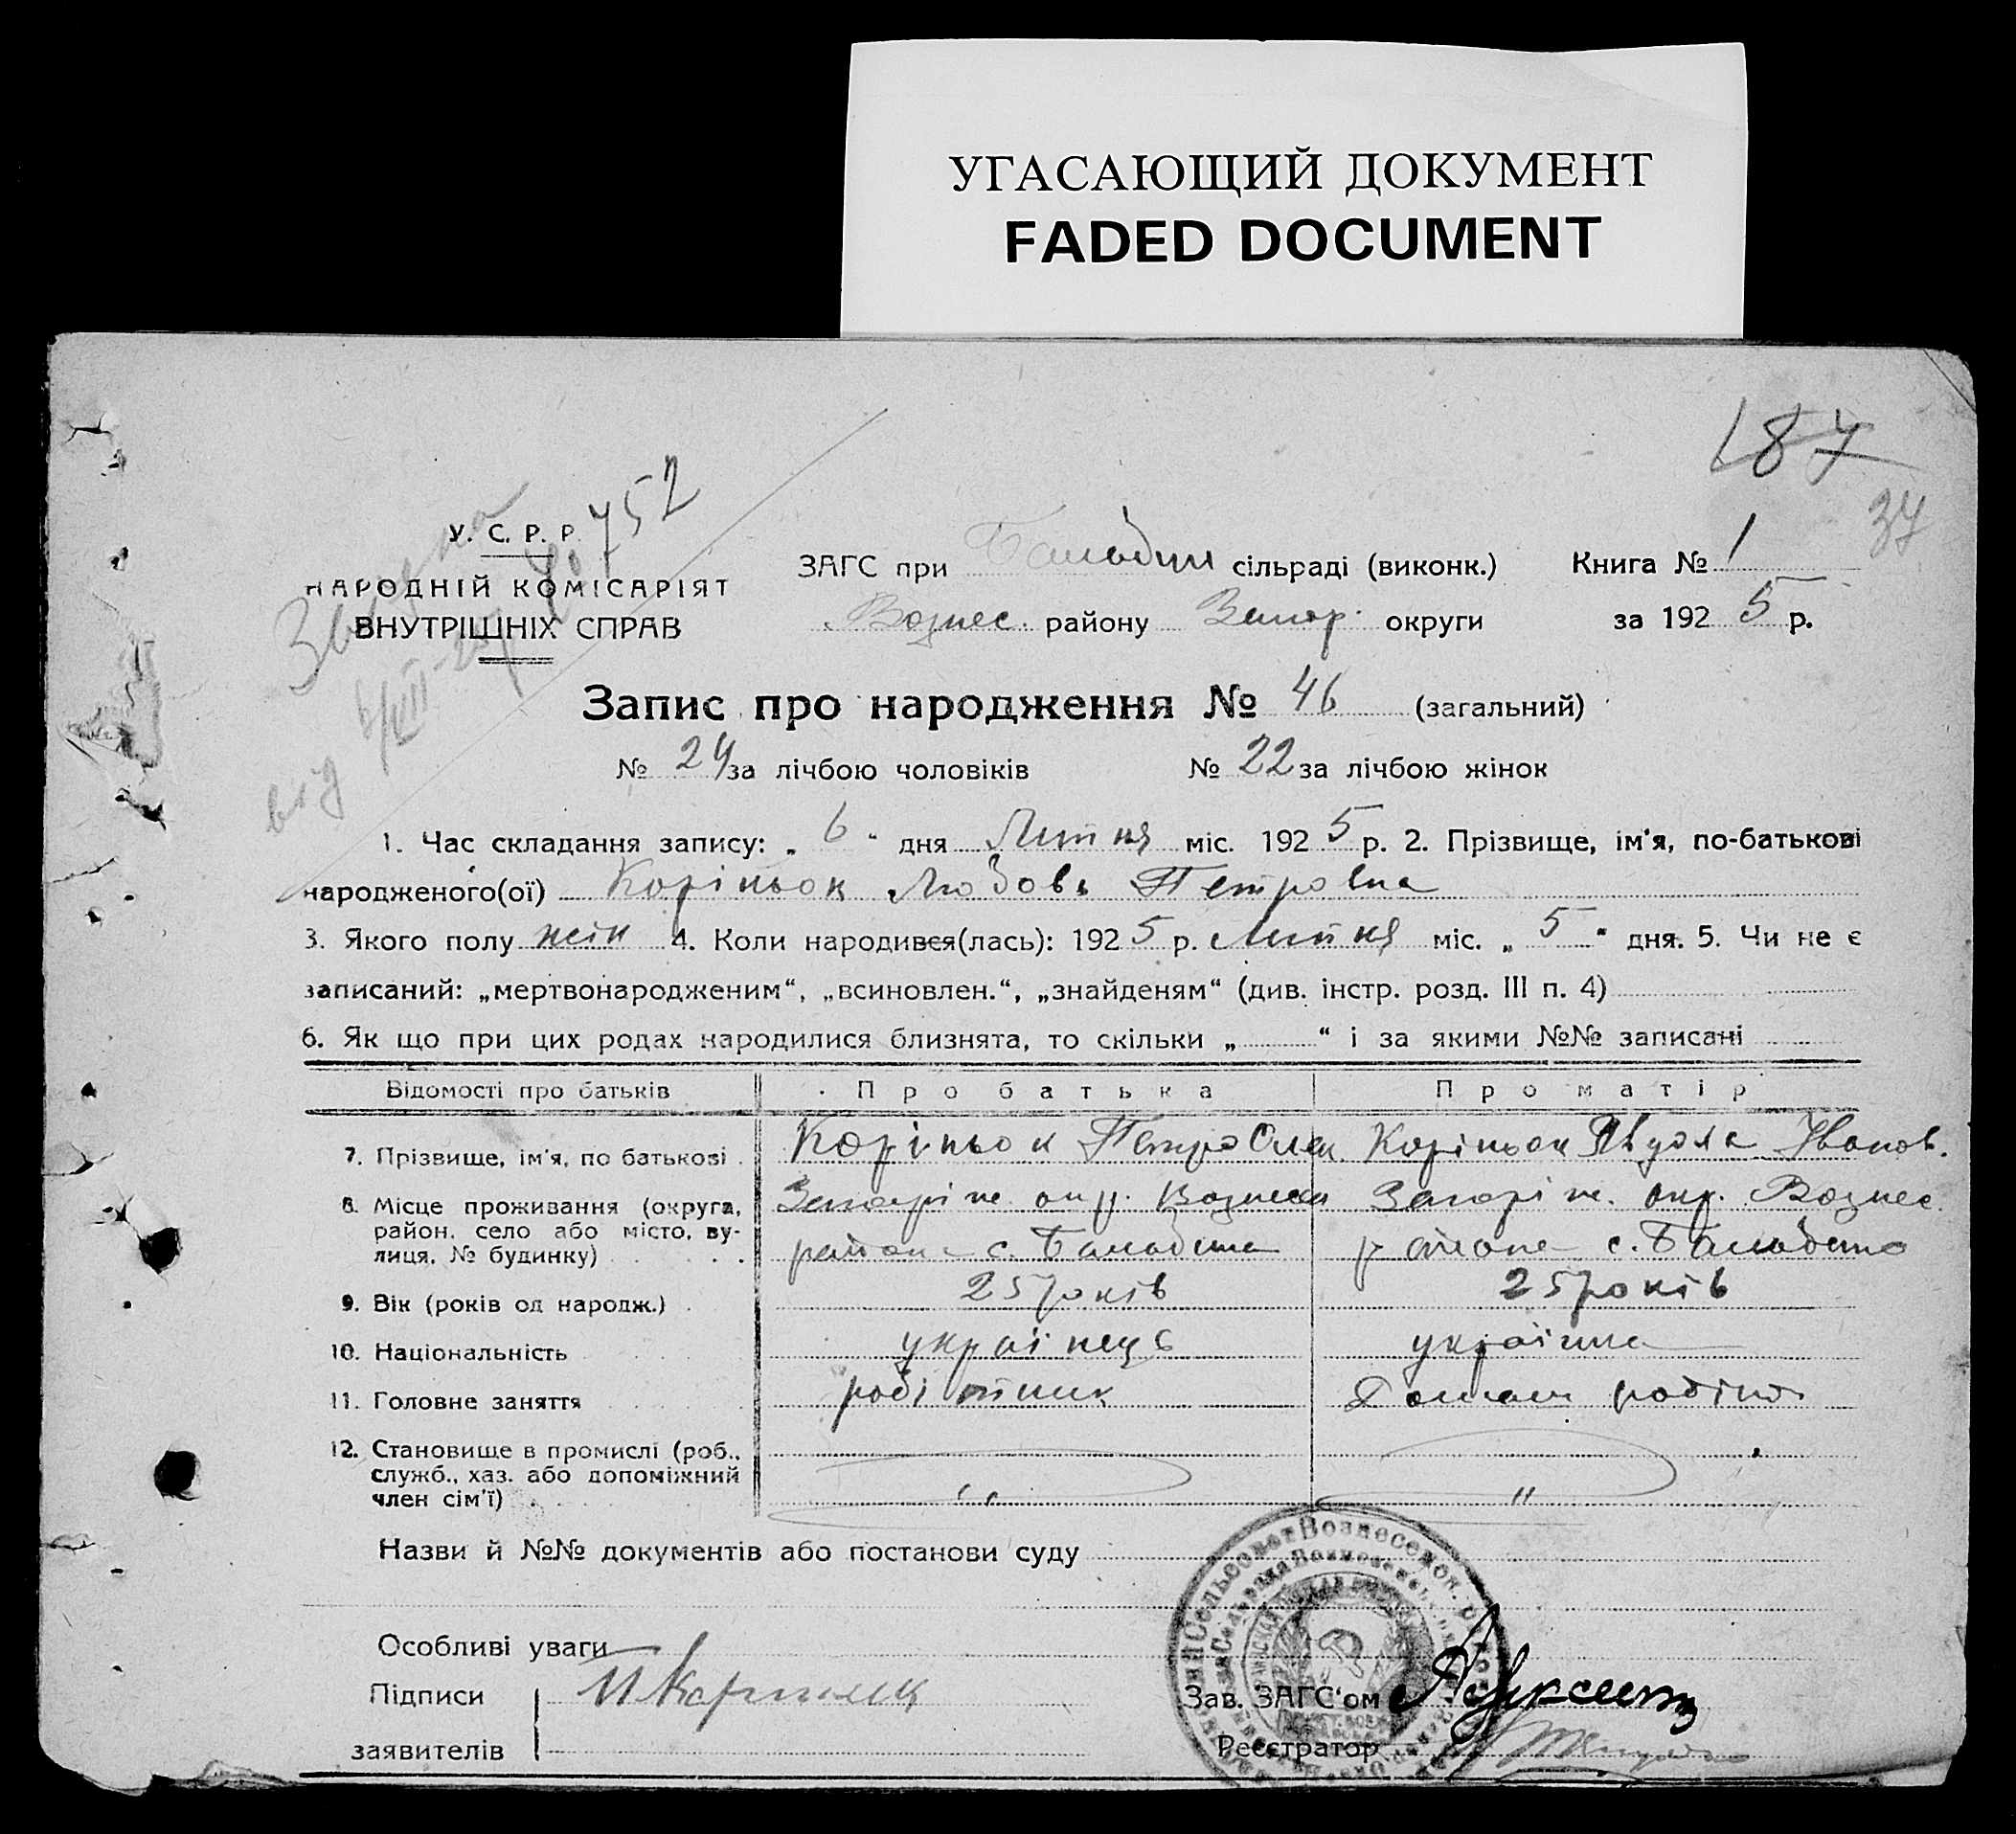 УГАСАЮЩИЙ ДОКУМЕНТ
FADED DOCUMENT
187
37
752
У. С. Р. Р.
НАРОДНІЙ КОМІСАРІЯТ
ВНУТРІШНІХ СПРАВ
ЗАГС при сільраді (виконк.) Книга № 1
Вознес. району Запор. округи за 1925 р.
Запис про народження № 46 (загальний)
№ 24 за лічбою чоловіків № 22 за лічбою жінок
1. Час складання запису: „ 6 “ дня Липня міс. 1925 р. 2. Прізвище, ім'я, по-батькові
народженого(ої) Коріньок Любовь Петровна
3. Якого полу жін 4. Коли народився(лась): 1925 р. Липня міс. „ 5 “ дня. 5. Чи не є
записаний: „мертвонародженим“, „всиновлен.“, „знайденям“ (див. інстр. розд. III п. 4)
6. Як що при цих родах народилися близнята, то скільки „ “ і за якими №№ записані
Відомості про батьків Про батька Про матір
7. Прізвище, ім'я, по батькові Коріньок Петро Коріньок Іванов.
8. Місце проживання (округа, Запоріж. окр. Вознесен Запоріж. окр. Вознес.
район, село або місто, ву- района с. Балабина района с. Балабино
лиця, № будинку)
9. Вік (років од народж.) 25 років 25 років
10. Національність українець українка
11. Головне заняття робітник Домаш робітн.
12. Становище в промислі (роб.,
служб., хаз. або допоміжний „ „
член сім'ї)
Назви й №№ документів або постанови суду
Особливі уваги
Підписи
Зав. ЗАГС'ом
заявителів
Реєстратор